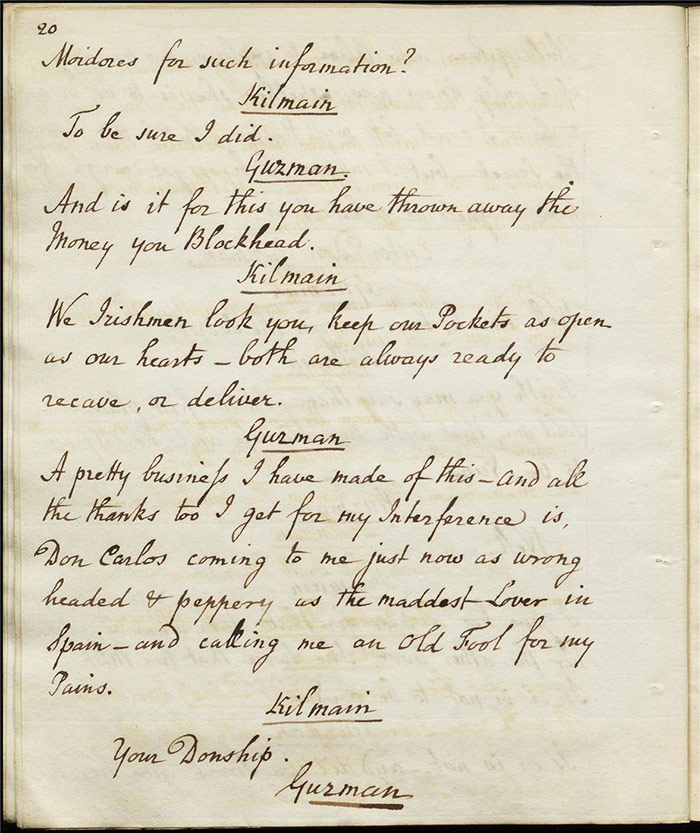 20
Moidores for such information?
Kilmain
To be sure I did.
Guzman.
And is it for this you have thrown away the
Money you Blockhead.
Kilmain
We Irishmen look you, keep our Pockets as open
as our hearts – both are always ready to
recave, or deliver.
Guzman
A pretty busineſs I have made of this – and all
the thanks too I get for my Interference is,
Don Carlos coming to me just now as wrong
headed & peppery as the maddest Lover in
Spain – and calling me an Old Fool for my
Pains.
Kilmain
Your Donship.
Guzman